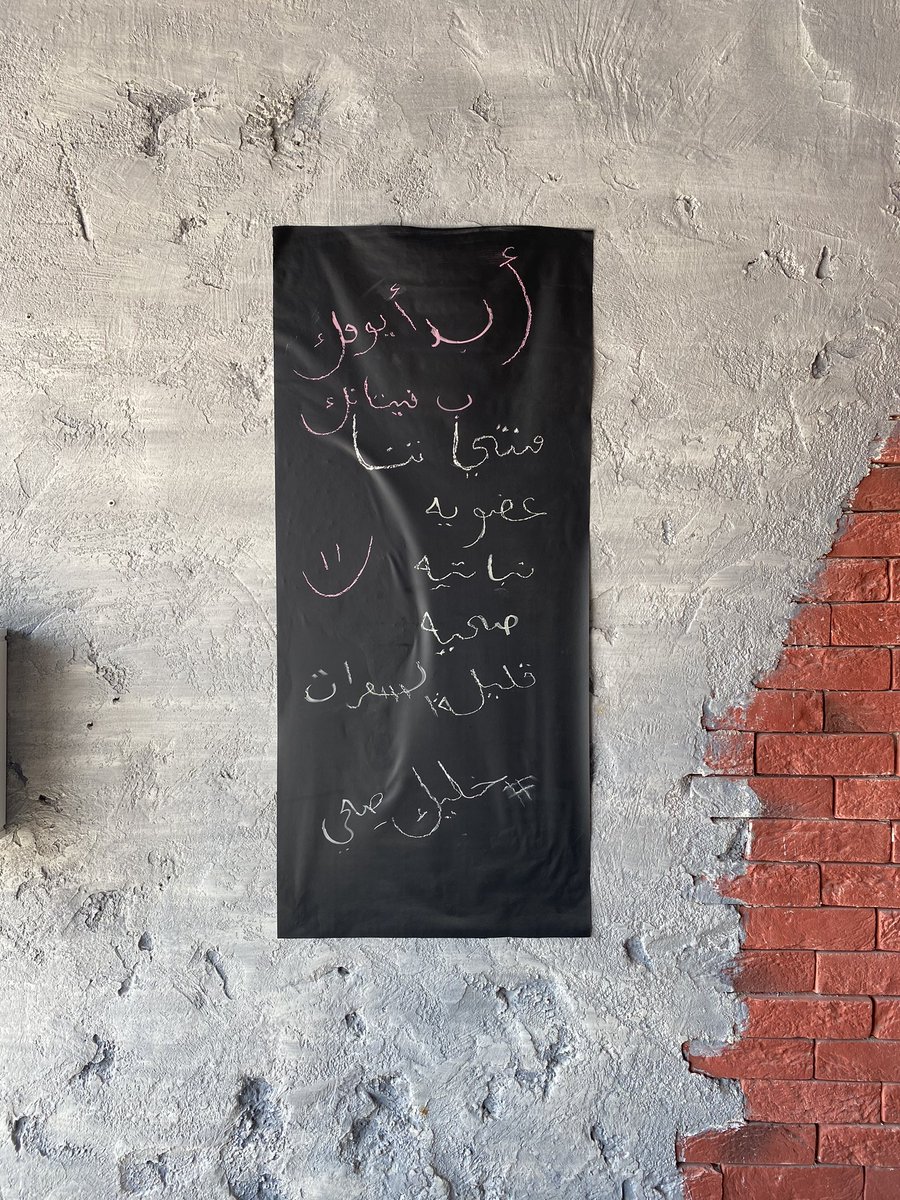 أبدأ يومك
ب فيتناتك
منتجاتنا
عضويه
نباتيه
صحيه
قليلة السعرات
#خليك صحي